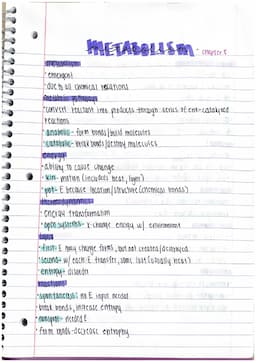 METABOLISM - chapter 8
metabolism
• emergent
• due to all chemical reactions
metabolic pathways
• convert reactant into products through series of enz-catalyzed
reactions
• anabolic - form bonds/build molecules
• catabolic - break bonds/destroy molecules
energy
• ability to cause change
• kin- motion (includes heat, light)
• pot- E because location/structure (chemical bonds)
thermodynamics
• energy transformation
• open systems- x-change energy w/ environment
laws
• first- E may change forms, but not created/destroyed
• second- w/ each E transfer, some lost (usually heat)
• entropy- disorder
• spontaneous: no E input needed
• break bonds, increase entropy
• nonspon- needed E
• form bonds-decrease entropy